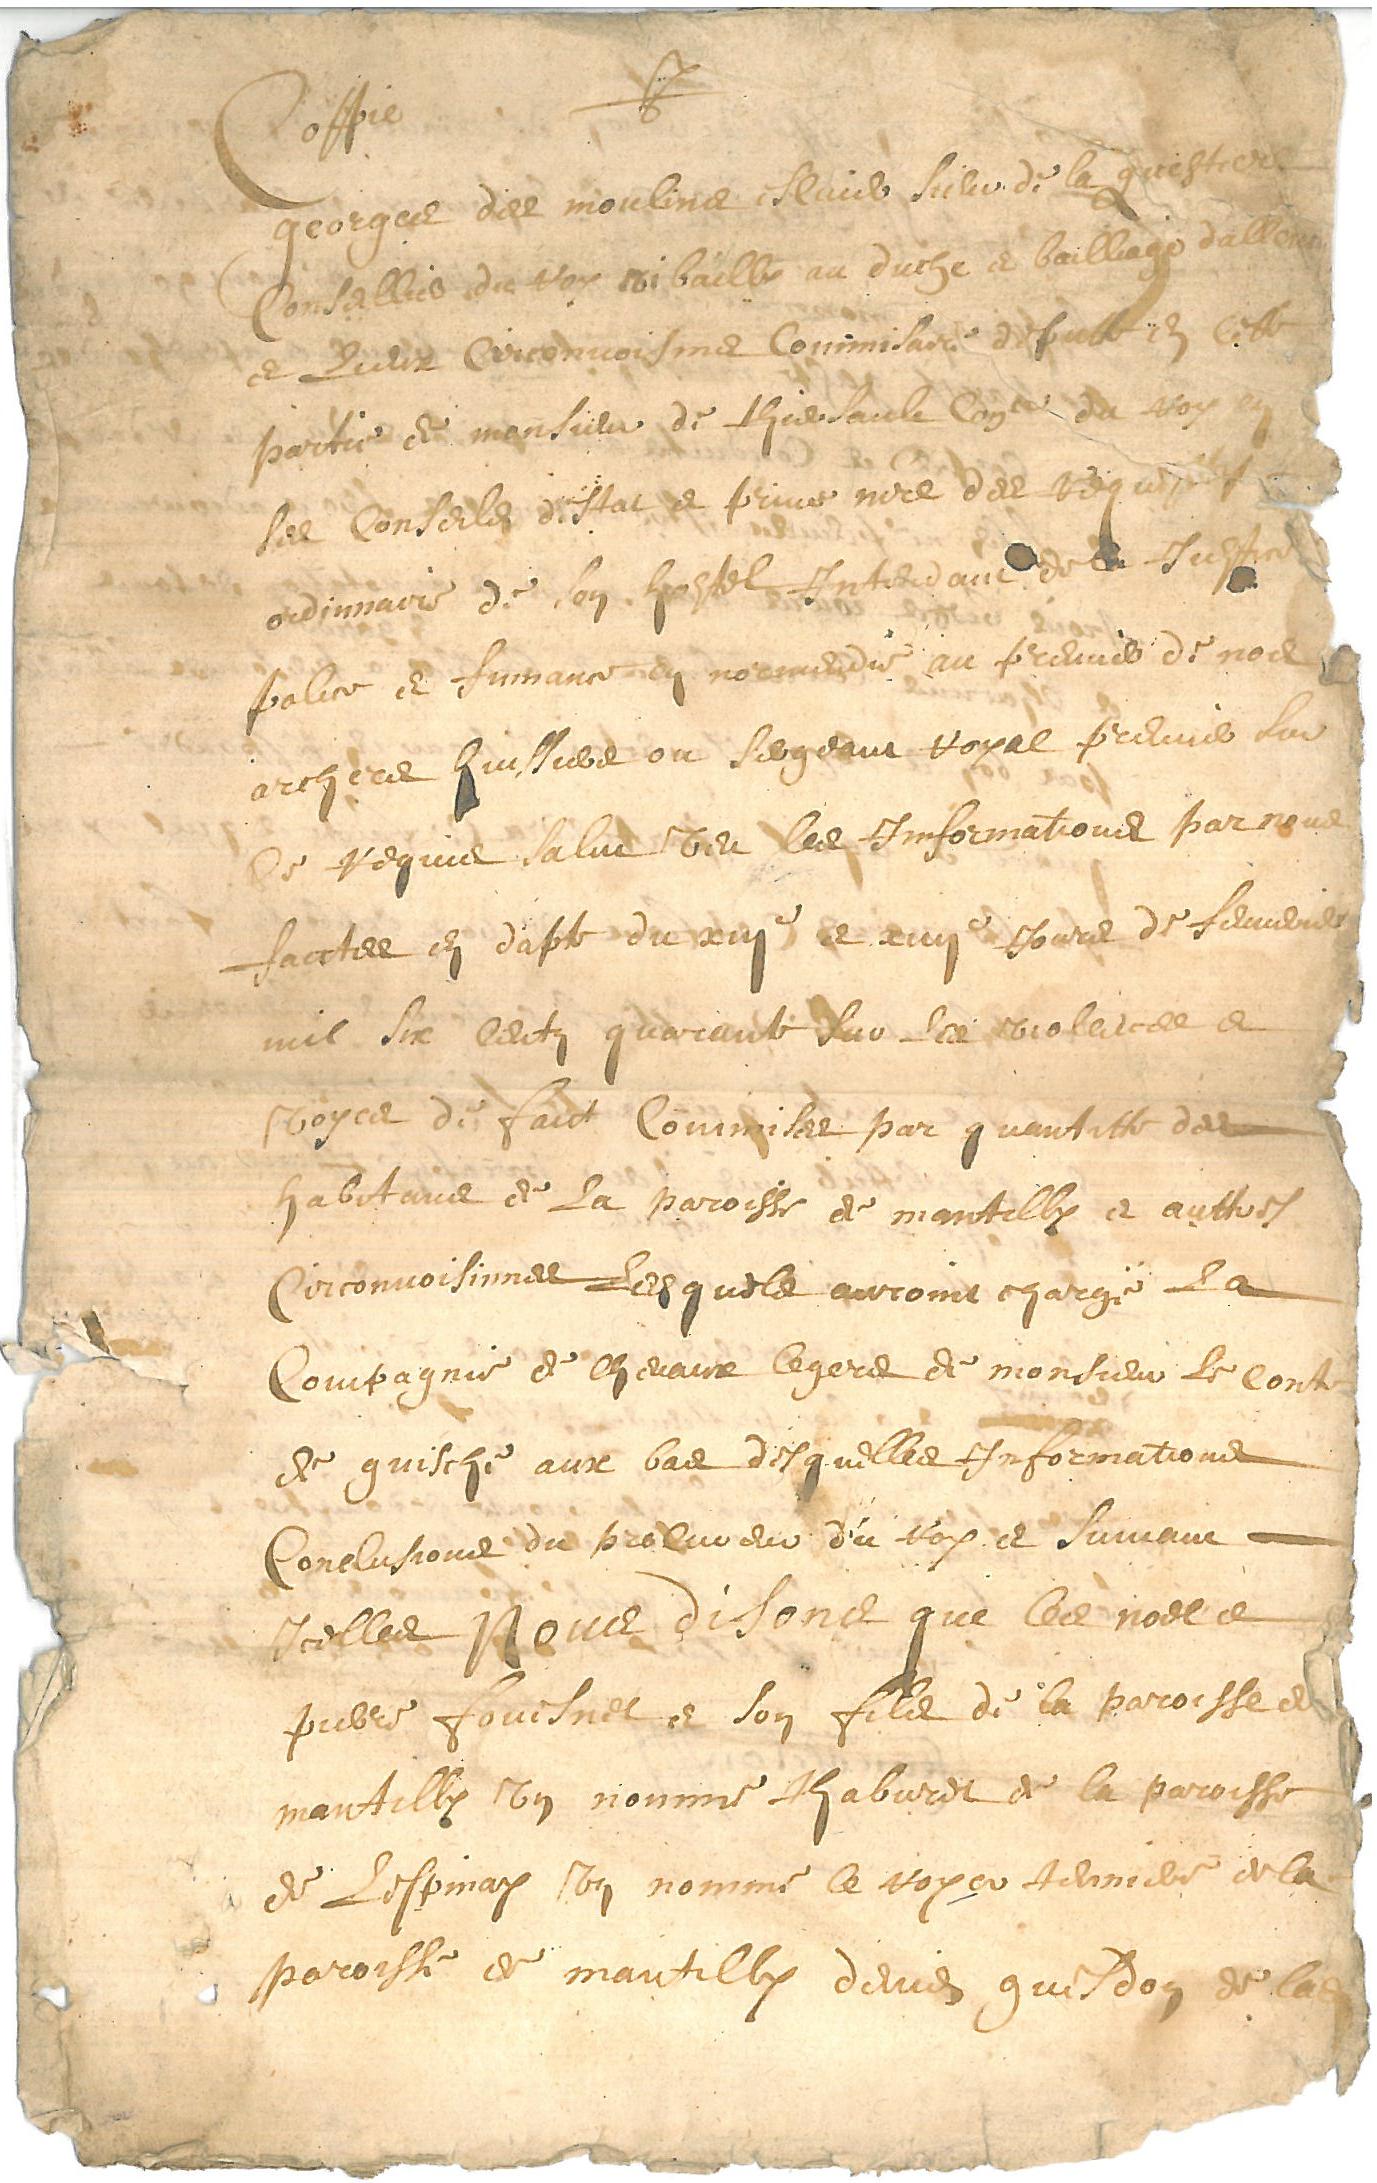 Coppie
georges des moulins escuier sieur de la questiere
Conseiller du Roy vibailly au duche et bailliage dallencon
et Lieux Circonvoisins Commisaire depute en cette
partie de monsieur de thiersault Coner du Roy en
ses Conseils destat et prive mre des Requestes
ordinnaire de son hostel Intendant de la Justice
police et finance en normendie au premier de nos
archers huissier ou sergeant Royal premier sur
ce Requis salut Veu les Informations par nous
faictes en dapte du xiije et xiiije Jours de febvrier
mil six centz quarante sur les viollences et
Voyes de faict Commises par quantitte des
habitans de La paroisse de mantilly et auttres
Circonvoisinnes Lesquels auroint chargé La
Compagnie de chevaux legers de monsieur Le Conte
de guische aux bas desquelles Informations
Conclusions du procureur du Roy et suivant
Icelles Nous disons que les nommés
pierre fouisnet et son fils de la paroisse de
mantilly Un nommé thaburet de la paroisse
de Lespinay Un nommé le Royer tennier de la
paroisse de mantilly denis guesdon de lad